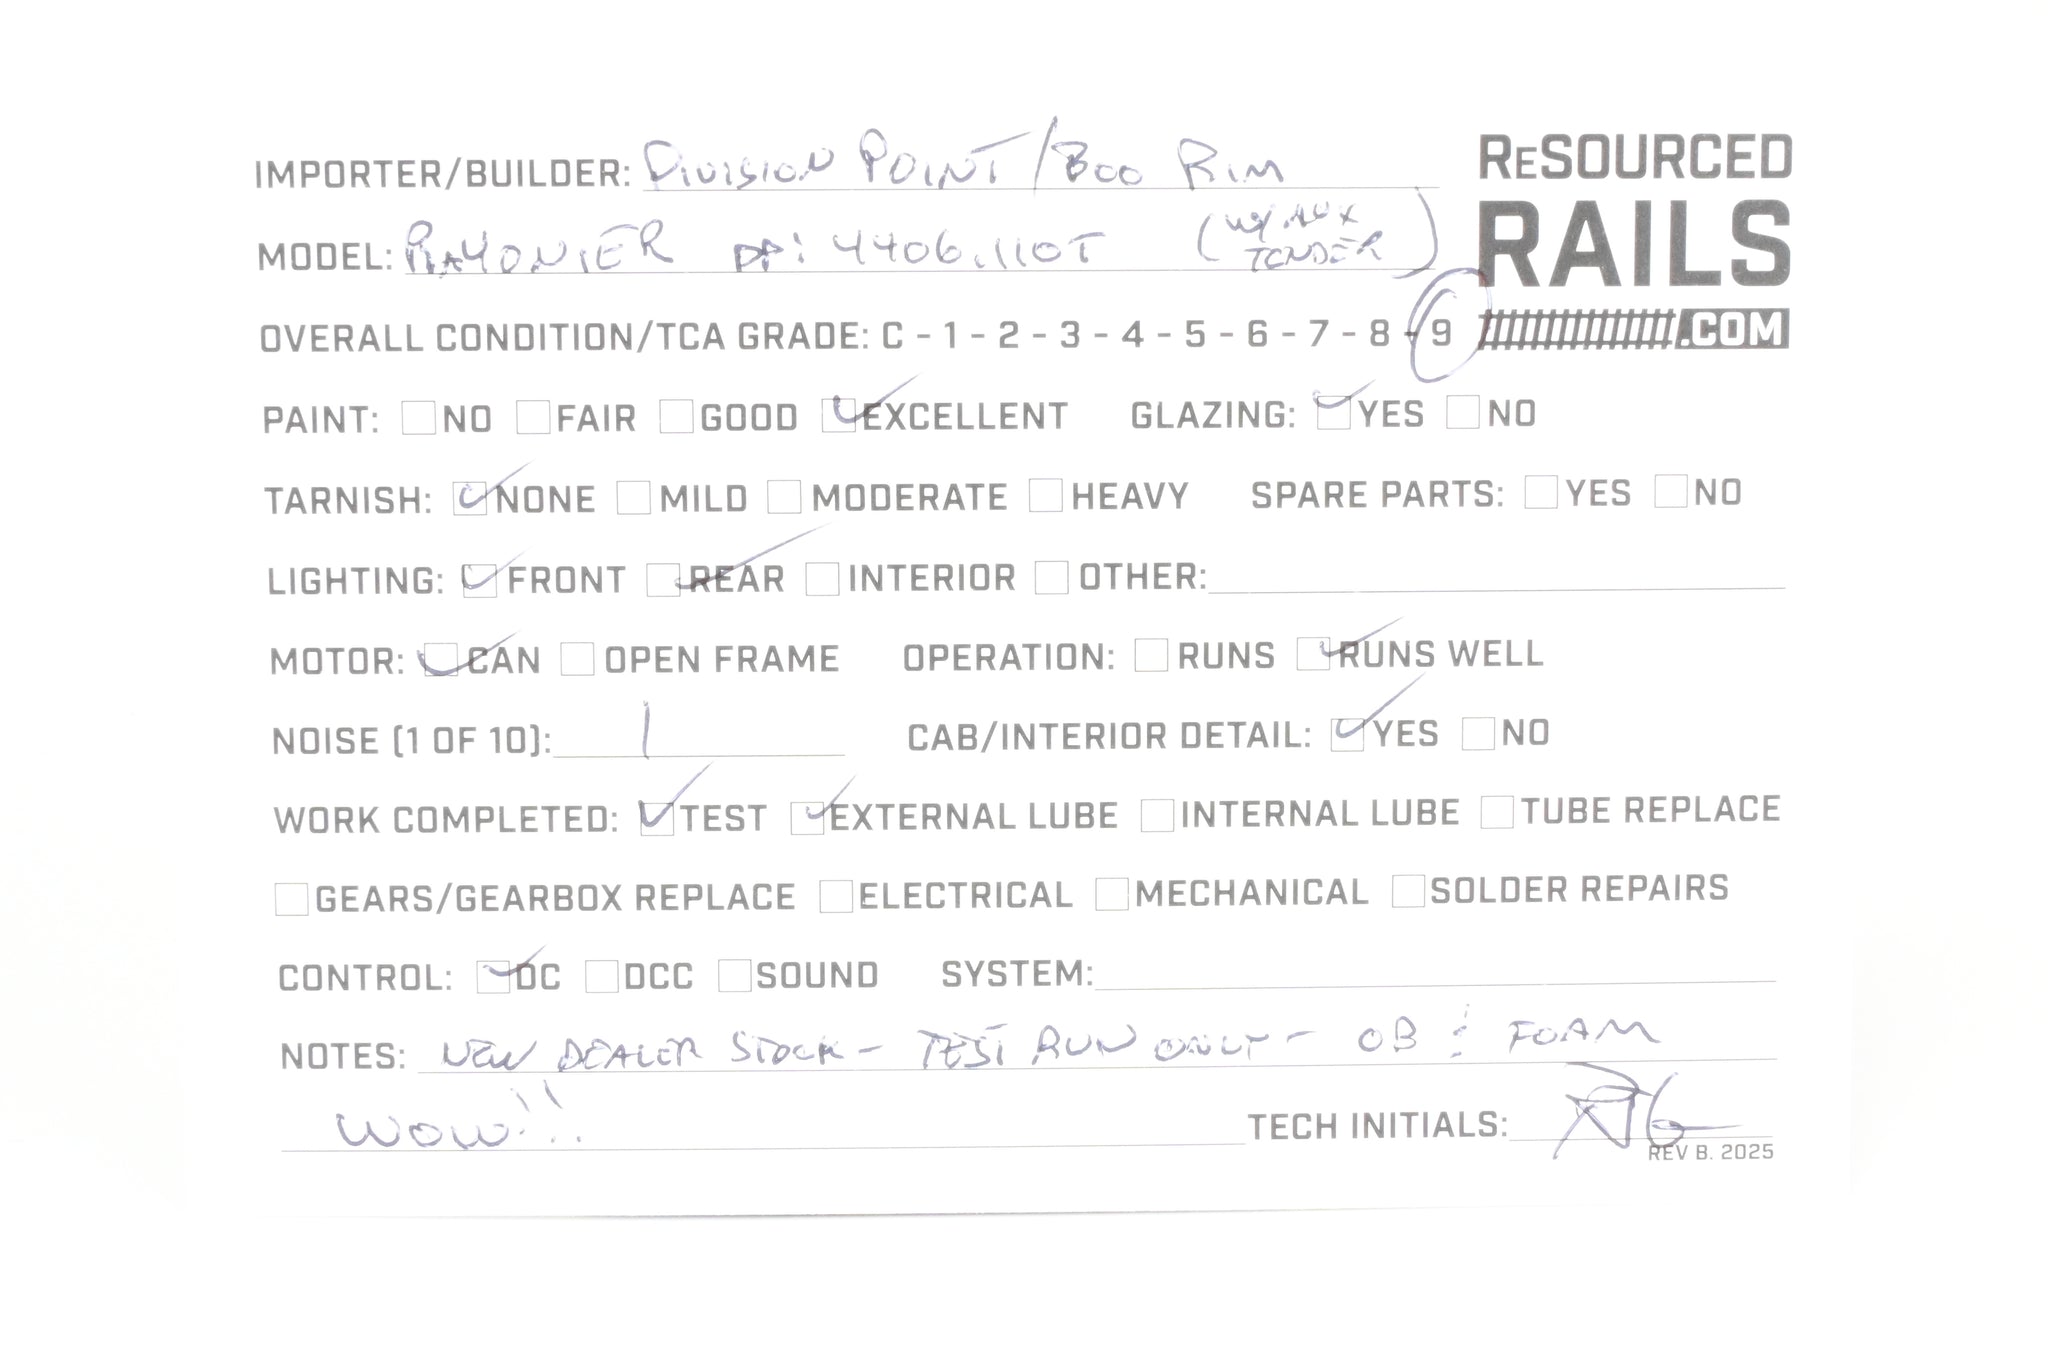 IMPORTER/BUILDER: DIVISION POINT/BOO RIM
ReSOURCED
RAILS
.COM
MODEL: RAYONIER DP: 4406.110T (W/AUX TENDER)
OVERALL CONDITION/TCA GRADE: C - 1 - 2 - 3 - 4 - 5 - 6 - 7 - 8 - 9
PAINT: NO FAIR GOOD EXCELLENT GLAZING: YES NO
TARNISH: NONE MILD MODERATE HEAVY SPARE PARTS: YES NO
LIGHTING: FRONT REAR INTERIOR OTHER:
MOTOR: CAN OPEN FRAME OPERATION: RUNS RUNS WELL
NOISE (1 OF 10): 1 CAB/INTERIOR DETAIL: YES NO
WORK COMPLETED: TEST EXTERNAL LUBE INTERNAL LUBE TUBE REPLACE
GEARS/GEARBOX REPLACE ELECTRICAL MECHANICAL SOLDER REPAIRS
CONTROL: DC DCC SOUND SYSTEM:
NOTES: NEW DEALER STOCK - TEST RUN ONLY - OB & FOAM
WOW!!! TECH INITIALS:
REV B. 2025